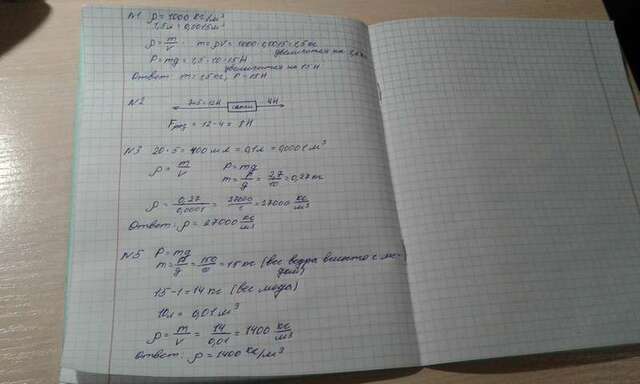 N1 ρ = 1000 кг/м³
1,5л = 0,0015м³
ρ = m/v · m = ρV = 1000·0,0015 = 1,5 кг
увеличится на
P = mg = 1,5·10 = 15 Н
увеличится на 15 Н
Ответ: m = 1,5 кг, P = 15 Н
N2 7+5=12Н санки 4Н
Fраз = 12-4 = 8Н
N3 20·5 = 100 мл = 0,1л = 0,0001 м³
ρ = m/v P = mg
m = P/g = 2,7/10 = 0,27 кг
ρ = 0,27/0,0001 = 27000/1 = 27000 кг/м³
Ответ: ρ = 27000 кг/м³
N5 P = mg
m = P/g = 150/10 = 15 кг (вес ведра вместе с ме-
дом)
15-1 = 14 кг (вес меда)
10л = 0,01 м³
ρ = m/v = 14/0,01 = 1400 кг/м³
Ответ: ρ = 1400 кг/м³